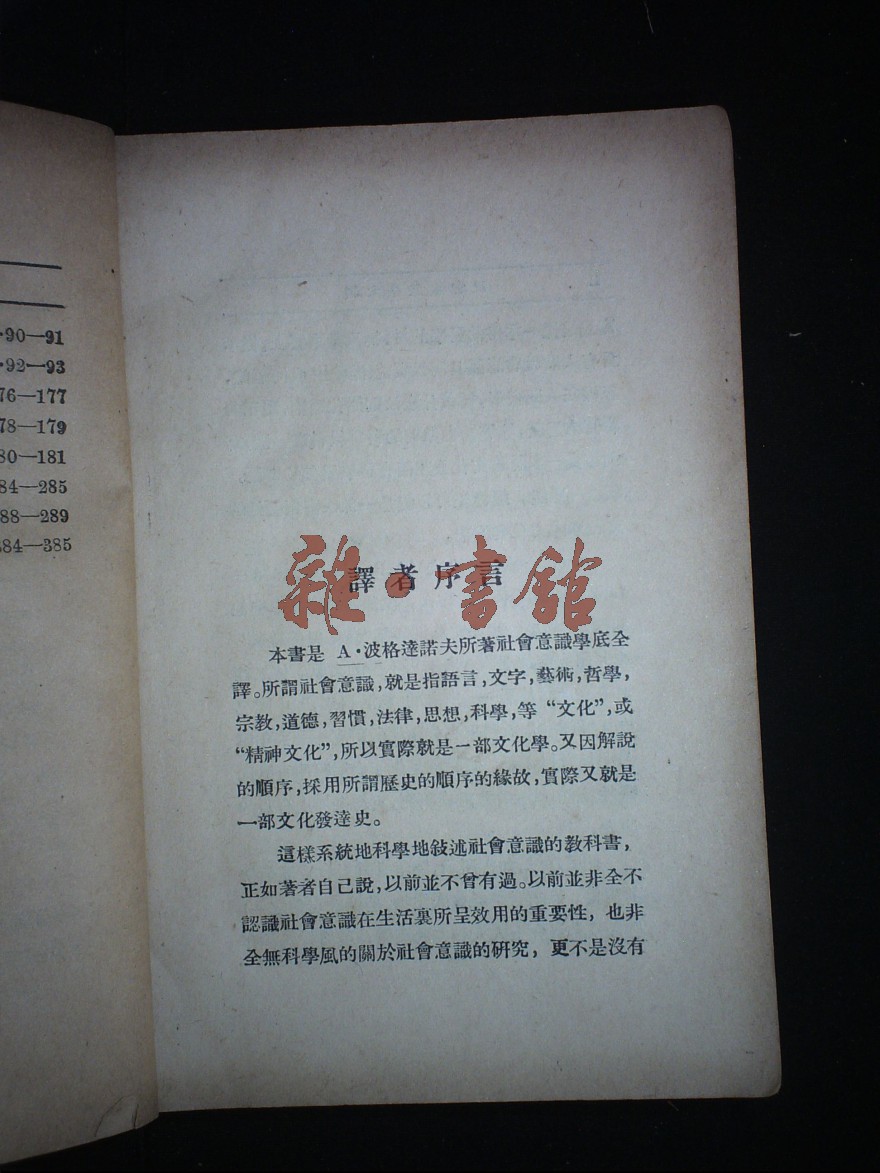 90—91
92—93
76—177
78—179
80—181
84—285
88—289
384—385
雜·書館
譯者序言
本書是 A·波格達諾夫所著社會意識學底全
譯。所謂社會意識,就是指語言,文字,藝術,哲學,
宗教,道德,習慣,法律,思想,科學,等“文化”,或
“精神文化”,所以實際就是一部文化學。又因解說
的順序,採用所謂歷史的順序的緣故,實際又就是
一部文化發達史。
這樣系統地科學地敍述社會意識的教科書,
正如著者自己說,以前並不曾有過。以前並非全不
認識社會意識在生活裏所呈效用的重要性,也非
全無科學風的關於社會意識的研究,更不是沒有